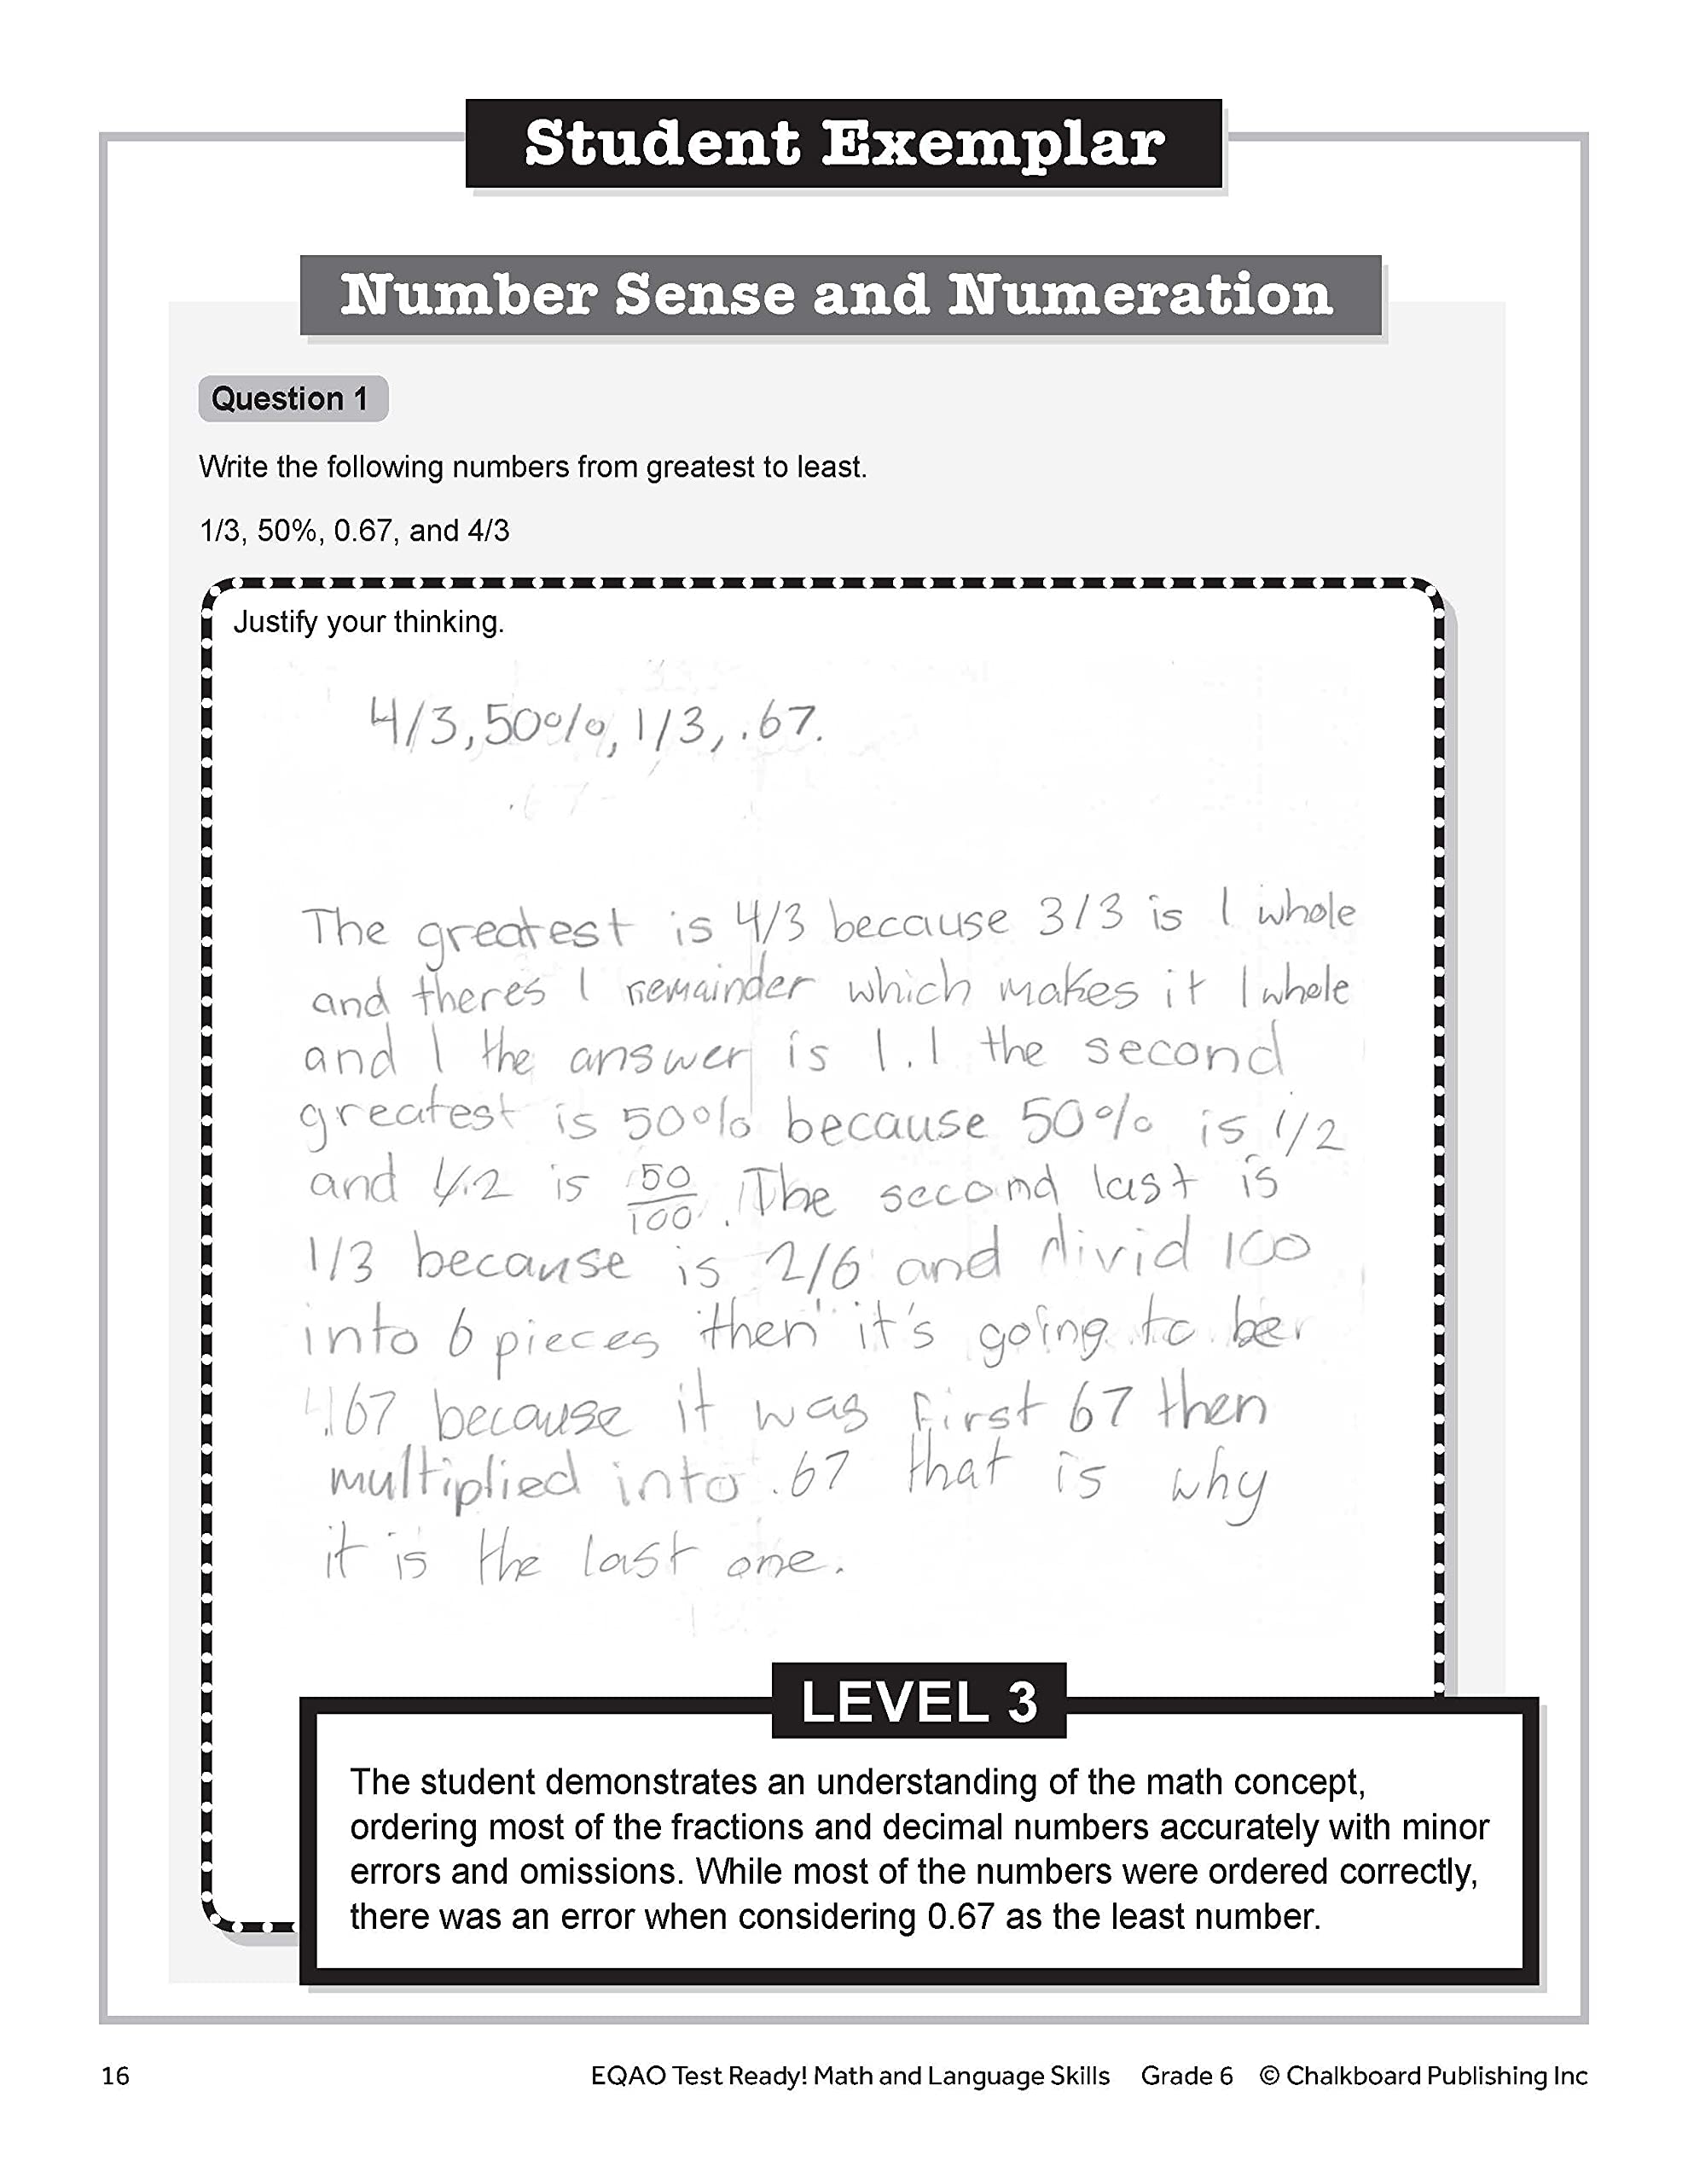 Student Exemplar
Number Sense and Numeration
Question 1
Write the following numbers from greatest to least.
1/3, 50%, 0.67, and 4/3
Justify your thinking.
4/3, 50%, 1/3, .67.
.67
The greatest is 4/3 because 3/3 is 1 whole
and theres 1 remainder which makes it 1 whole
and 1 the answer is 1.1 the second
greatest is 50% because 50% is 1/2
and 1/2 is 50/100. The second last is
1/3 because is 2/6 and divid 100
into 6 pieces then it's going to be
.167 because it was first 67 then
multiplied into .67 that is why
it is the last one.
LEVEL 3
The student demonstrates an understanding of the math concept,
ordering most of the fractions and decimal numbers accurately with minor
errors and omissions. While most of the numbers were ordered correctly,
there was an error when considering 0.67 as the least number.
16 EQAO Test Ready! Math and Language Skills Grade 6 © Chalkboard Publishing Inc